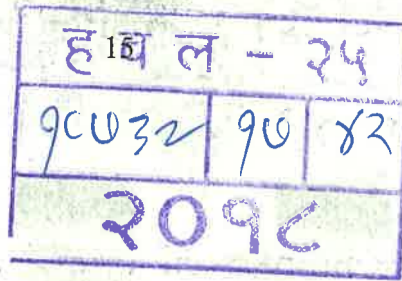 हवल - २५
15
१८७३२ १७ ४२
२०१८